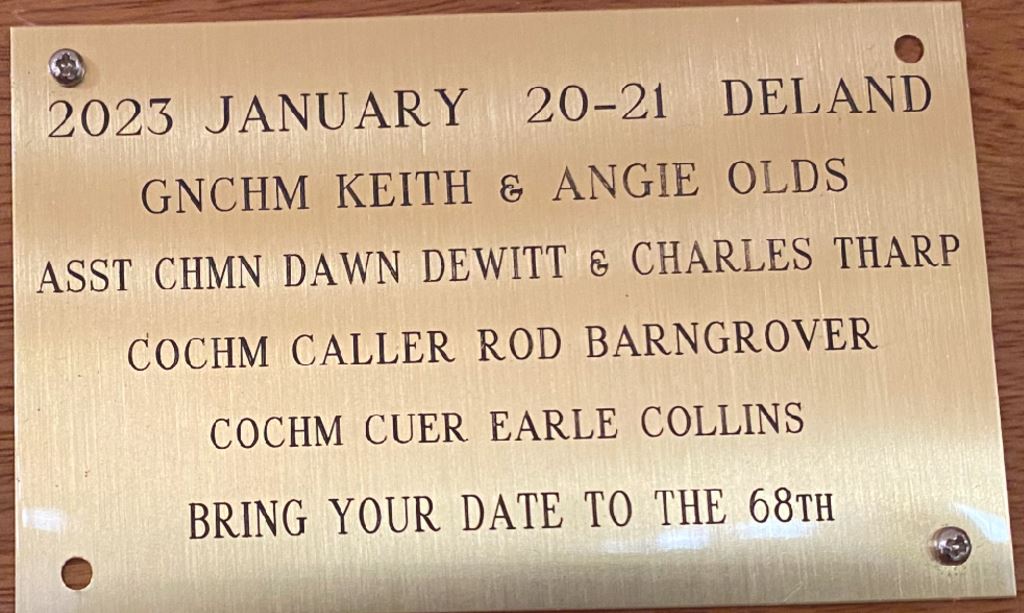 2023 JANUARY 20-21 DELAND
GNCHM KEITH & ANGIE OLDS
ASST CHMN DAWN DEWITT & CHARLES THARP
COCHM CALLER ROD BARNGROVER
COCHM CUER EARLE COLLINS
BRING YOUR DATE TO THE 68TH